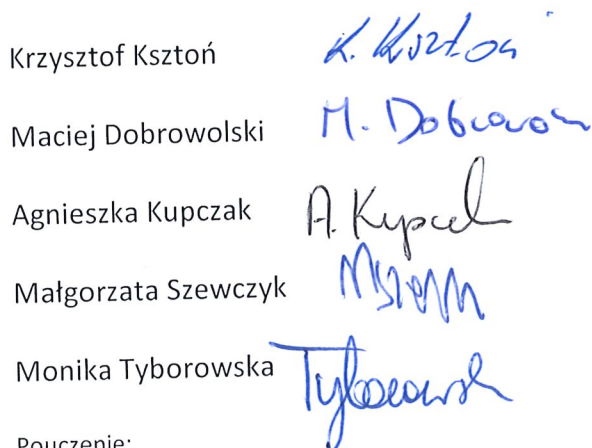 Krzysztof Ksztoń K. Ksztoń
Maciej Dobrowolski M. Dobrowol
Agnieszka Kupczak A. Kupczak
Małgorzata Szewczyk
Monika Tyborowska Tyborowsk
Pouczenie: